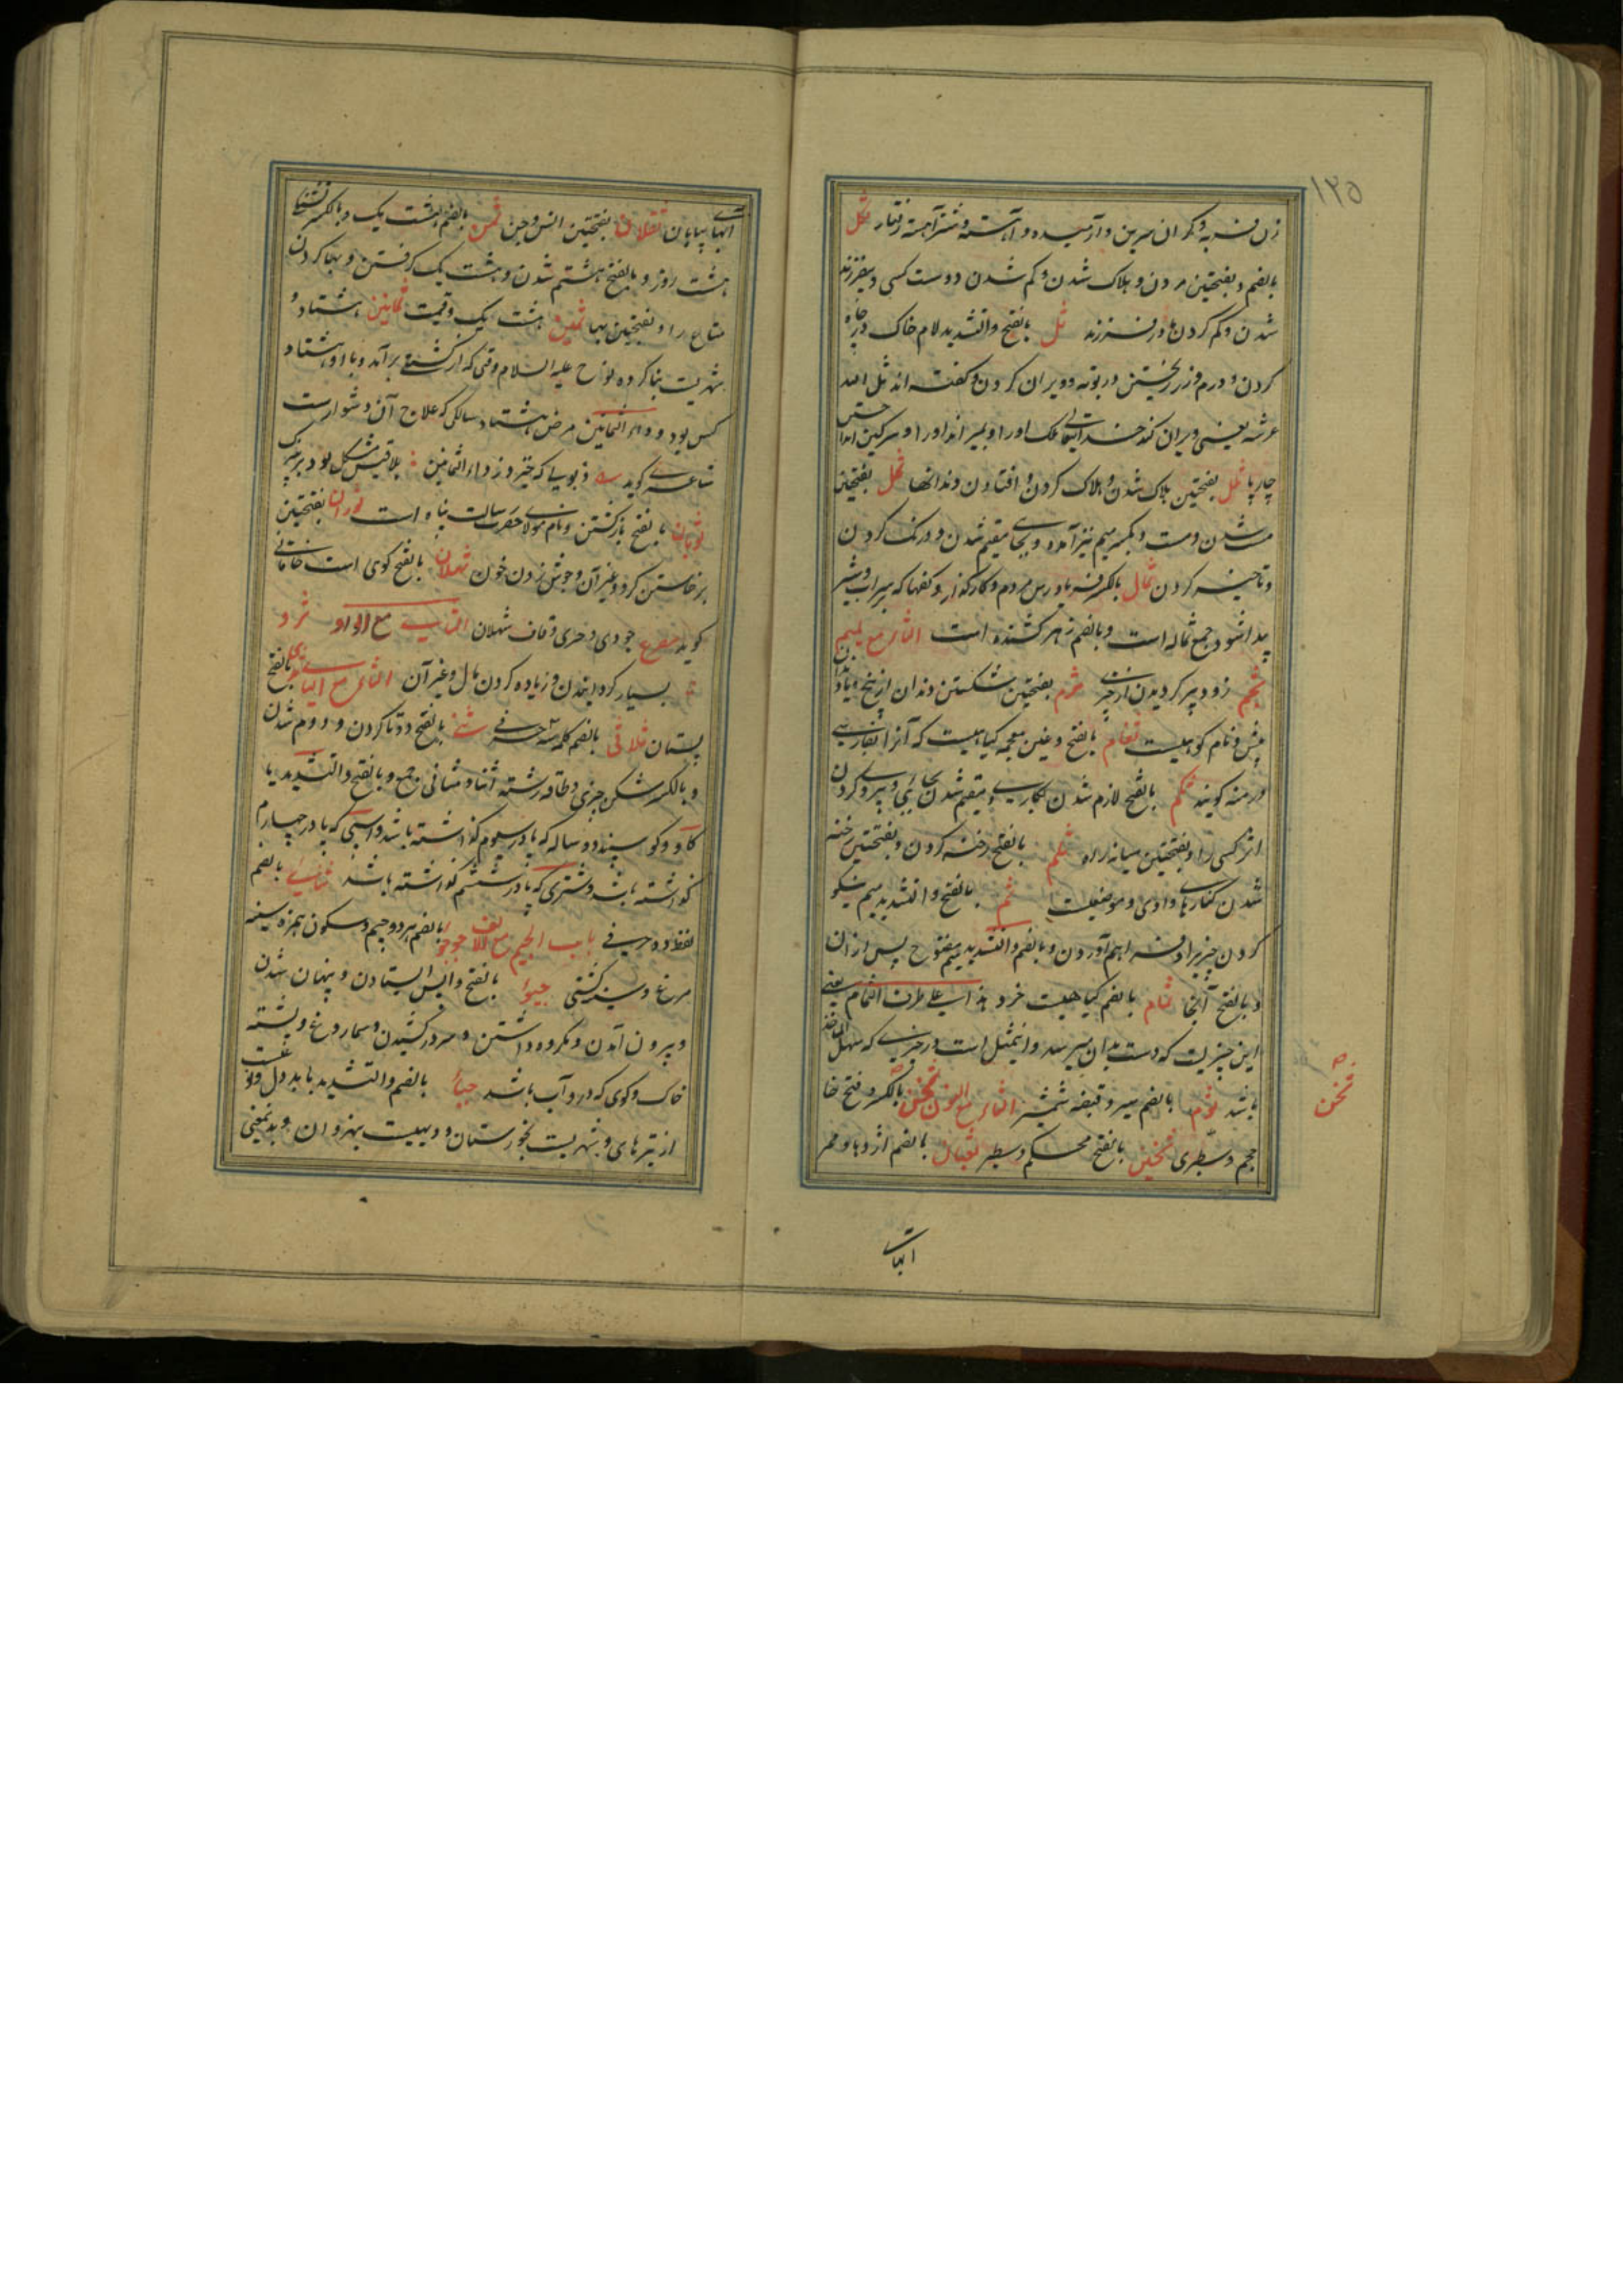 ۱۲۵
زن فربه و گران سرین و آرمیده و آهسته و شتر آهسته رفتار ثکل
بالضم و بفتحتین مردن و هلاک شدن و کم شدن دوست کسی و بیفرزند
شدن و کم کردن مادر فرزند ثل بالفتح و التشدید لام خاک در چاه
کردن و درم و زر ریختن در بوته و ویران کردن و گفته اند ثل الله
عرشه یعنی ویران کند خدایتعالی ملک او را و بمیراند او را و سرکین انداختن
چارپا ثلل بفتحتین هلاک شدن و هلاک کردن و افتادن دندانها ثمل بفتحتین
مست شدن و مست و بکسر میم نیز آمده و بجای مقیم شدن و درنگ کردن
و تاخیر کردن ثمال بالکسر فریادرس مردم و کارگذار و کفها که بر سر آب و شیر
پیدا شود جمع ثماله است و بالضم زهر کشنده است الثای مع المیم
ثجم زود پیر کردیدن از چیزی ثرم بفتحتین شکستن دندان از بیخ یا دندان
پیش و نام کوهیست ثغام بالفتح و غین معجمه کیاهیست که آنرا بفارسی
درمنه کویند ثکم بالفتح لازم شدن بکاری و مقیم شدن بجائی و پیروی کردن
اثر کسی را و بفتحتین میانه راه ثلم بالفتح رخنه کردن و بفتحتین رخنه
شدن کنارهای وادی و موضعیست ثم بالفتح و التشدید میم نیکو
کردن چیزی را و فراهم آوردن و بالضم و التشدید میم مفتوح پس ازان
و بالفتح آنجا ثمام بالضم کیاهیست خرد هذا علی طرف الثمام یعنی
این چیزیست که دست بدان میرسد و این مثل است در چیزی که سهل المأخذ
باشد ثوم بالضم سیر و قبضه شمشیر الثای مع النون ثخن بالکسر و فتح خا
حجم و سطبری ثخین بالفتح محکم و سطبر ثعبان بالضم اژدها و ممر
صح
ثخن
آبهای
آبهای بیابان ثقلان بفتحتین انس و جن ثمن بالضم هشت یک و بالکسر تشنکی
هشت روز و بالفتح هشتم شدن و هشت یک کرفتن و بها کردن
متاع را و بفتحتین بها ثمین هشت یک و قیمتی ثمانین هشتاد و
شهریست بنا کرده نوح علیه السلام وقتی که از کشتی برآمد و با او هشتاد
کس بود و داء الثمانین مرض هشتاد سالکی که علاج آن دشوارست
شاعری کوید
ثوبان بالفتح بازکشتن و نام مولای حضرت رسالت پناه است ثوران بفتحتین
برخاستن کرد و غیر آن و جوش زدن خون ثهلان بالفتح کوهی است خاقانی
کوید مصرع جودی و حری و قاف ثهلان الثای مع الواو ثرو
بسیار کردانیدن و زیاده کردن مال و غیر آن الثای مع الیای ثدی بالفتح
پستان ثلاثی بالضم کلمه سه حرفی ثنی بالفتح دو تا کردن و دوم شدن
و بالکسر شکن چیزی و طاقه رشته اثنا و مثانی جمع و بالفتح و التشدید یا
کاو و کوسپند دو ساله که پا در سیوم کذاشته باشد و اسپی که پا در چهارم
کذاشته باشد و شتری که پا در ششم کذاشته باشد ثنائی بالضم
لفظ دو حرفی باب الجیم مع الالف جوجو بالضم هر دو جیم و سکون همزه سینه
مرغ و سینه کشتی جبوا بالفتح واپس ایستادن و پنهان شدن
و بیرون آمدن و مکروه داشتن و سر در کشیدن و سماروغ و پشته
خاک و کوی که درو آب باشد جباء بالضم و التشدید با بد دل و نوعیست
از تیرهای و شهریست بخوزستان و دیهیست بنهروان و بدینمعنی